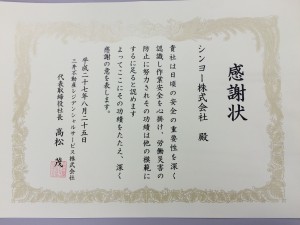 感謝状
シンヨー株式会社 殿
貴社は日頃の安全の重要性を深く
認識し作業安全を心掛け、労働災害の
防止に努力されその功績は他の模範に
するに足ると認めます
よってここにその功績をたたえ、深く
感謝の意を表します。
平成二十七年八月二十五日
三井不動産レジデンシャルサービス株式会社
代表取締役社長 高松 茂